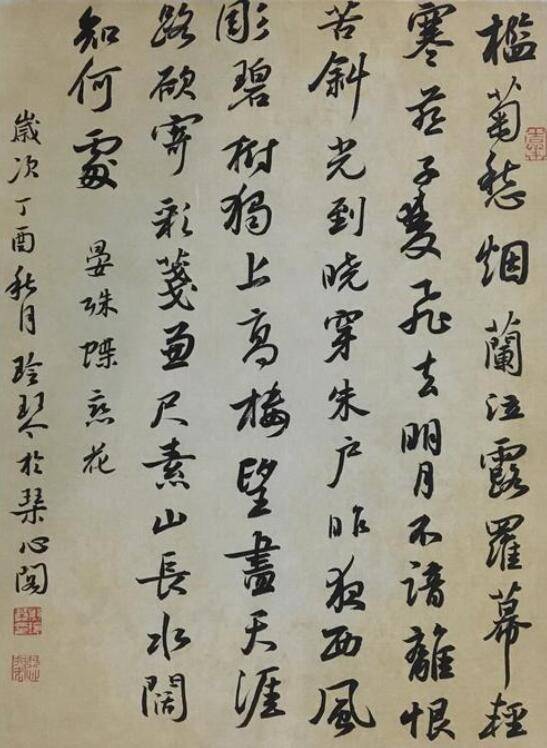 檻菊愁烟蘭泣露羅幕輕
寒燕子雙飛去明月不諳離恨
苦斜光到曉穿朱户昨夜西風
彫碧樹獨上高樓望盡天涯
路欲寄彩箋兼尺素山長水闊
知何處
晏殊蝶戀花
歲次丁酉秋月玲琴於琹心閣